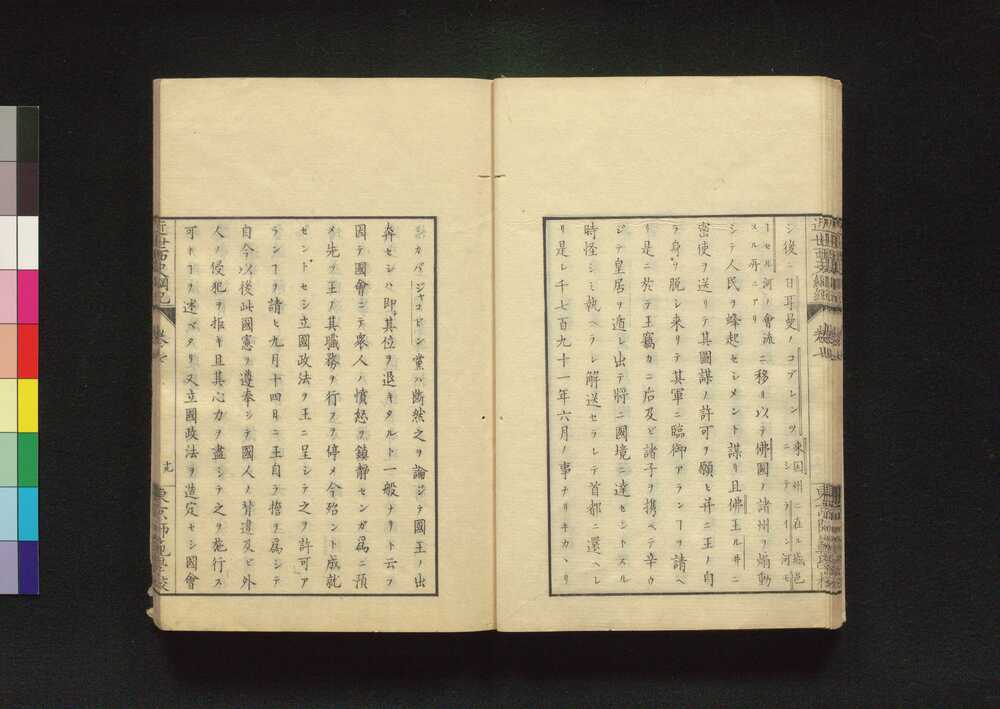 シ後ニ日耳曼ノコブレンツ東国州ニ在ル城邑ニシテライン河モ
ーセル河ノ會流ニ移リ以テ佛國ノ諸州ヲ煽動
スル所ニアリ
シテ人民ヲ蜂起セシメント謀リ且佛王ル井ニ
密使ヲ送リテ其圖謀ノ許可ヲ願ヒ并ニ王ノ自
ラ身リ脱シ来リテ其軍ニ臨御アランヿヲ請ヘ
リ是ニ於テ王竊カニ后及ビ諸子ヲ携ヘテ辛ウ
ジテ皇居ヲ遁レ出テ將ニ國境ニ達セントスル
時怪シミ執ヘラレ解送セラレテ首都ニ還ヘレ
リ是レ千七百九十一年六月ノ事ナリキカヽリ
シカバジャコビン黨ハ斷然之ヲ論ジテ國王ノ出
奔セシハ即其位ヲ退キタルト一般ナリト云フ
因テ國會ニテ衆人ノ憤怒ヲ鎮静センガ爲ニ預
メ先ヅ王ノ其職務ヲ行フヲ停メ今殆ンド成就
ゼントセシ立國政法ヲ王ニ呈シテ之ヲ許可ア
ランヿヲ請ヒ九月十四日ニ王自ラ擔ヲ爲シテ
自今以後此國憲ヲ遵奉シテ國人ノ替違及ビ外
人ノ侵犯ヲ拒ギ且其心力ヲ盡シテ之ヲ施行ス
可トヿヲ述ベタリ又立國政法ヲ造定セシ國會
近世西史綱紀 卷七
東京師範學校